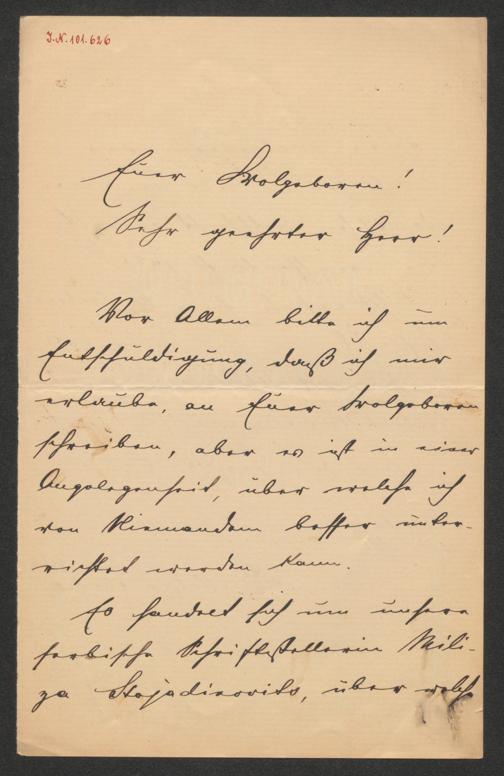 J.N. 101.626
Euer Wolgeboren!
Sehr geehrter Herr!
Vor Allem bitte ich um
Entschuldigung, daß ich mir
erlaube, an Euer Wolgeboren
schreiben, aber es ist in einer
Angelegenheit, über welche ich
von Niemandem besser unter-
richtet werden kann.
Es handelt sich um unsere
serbische Schriftstellerin Mili-
za Stojadinovits, über welch